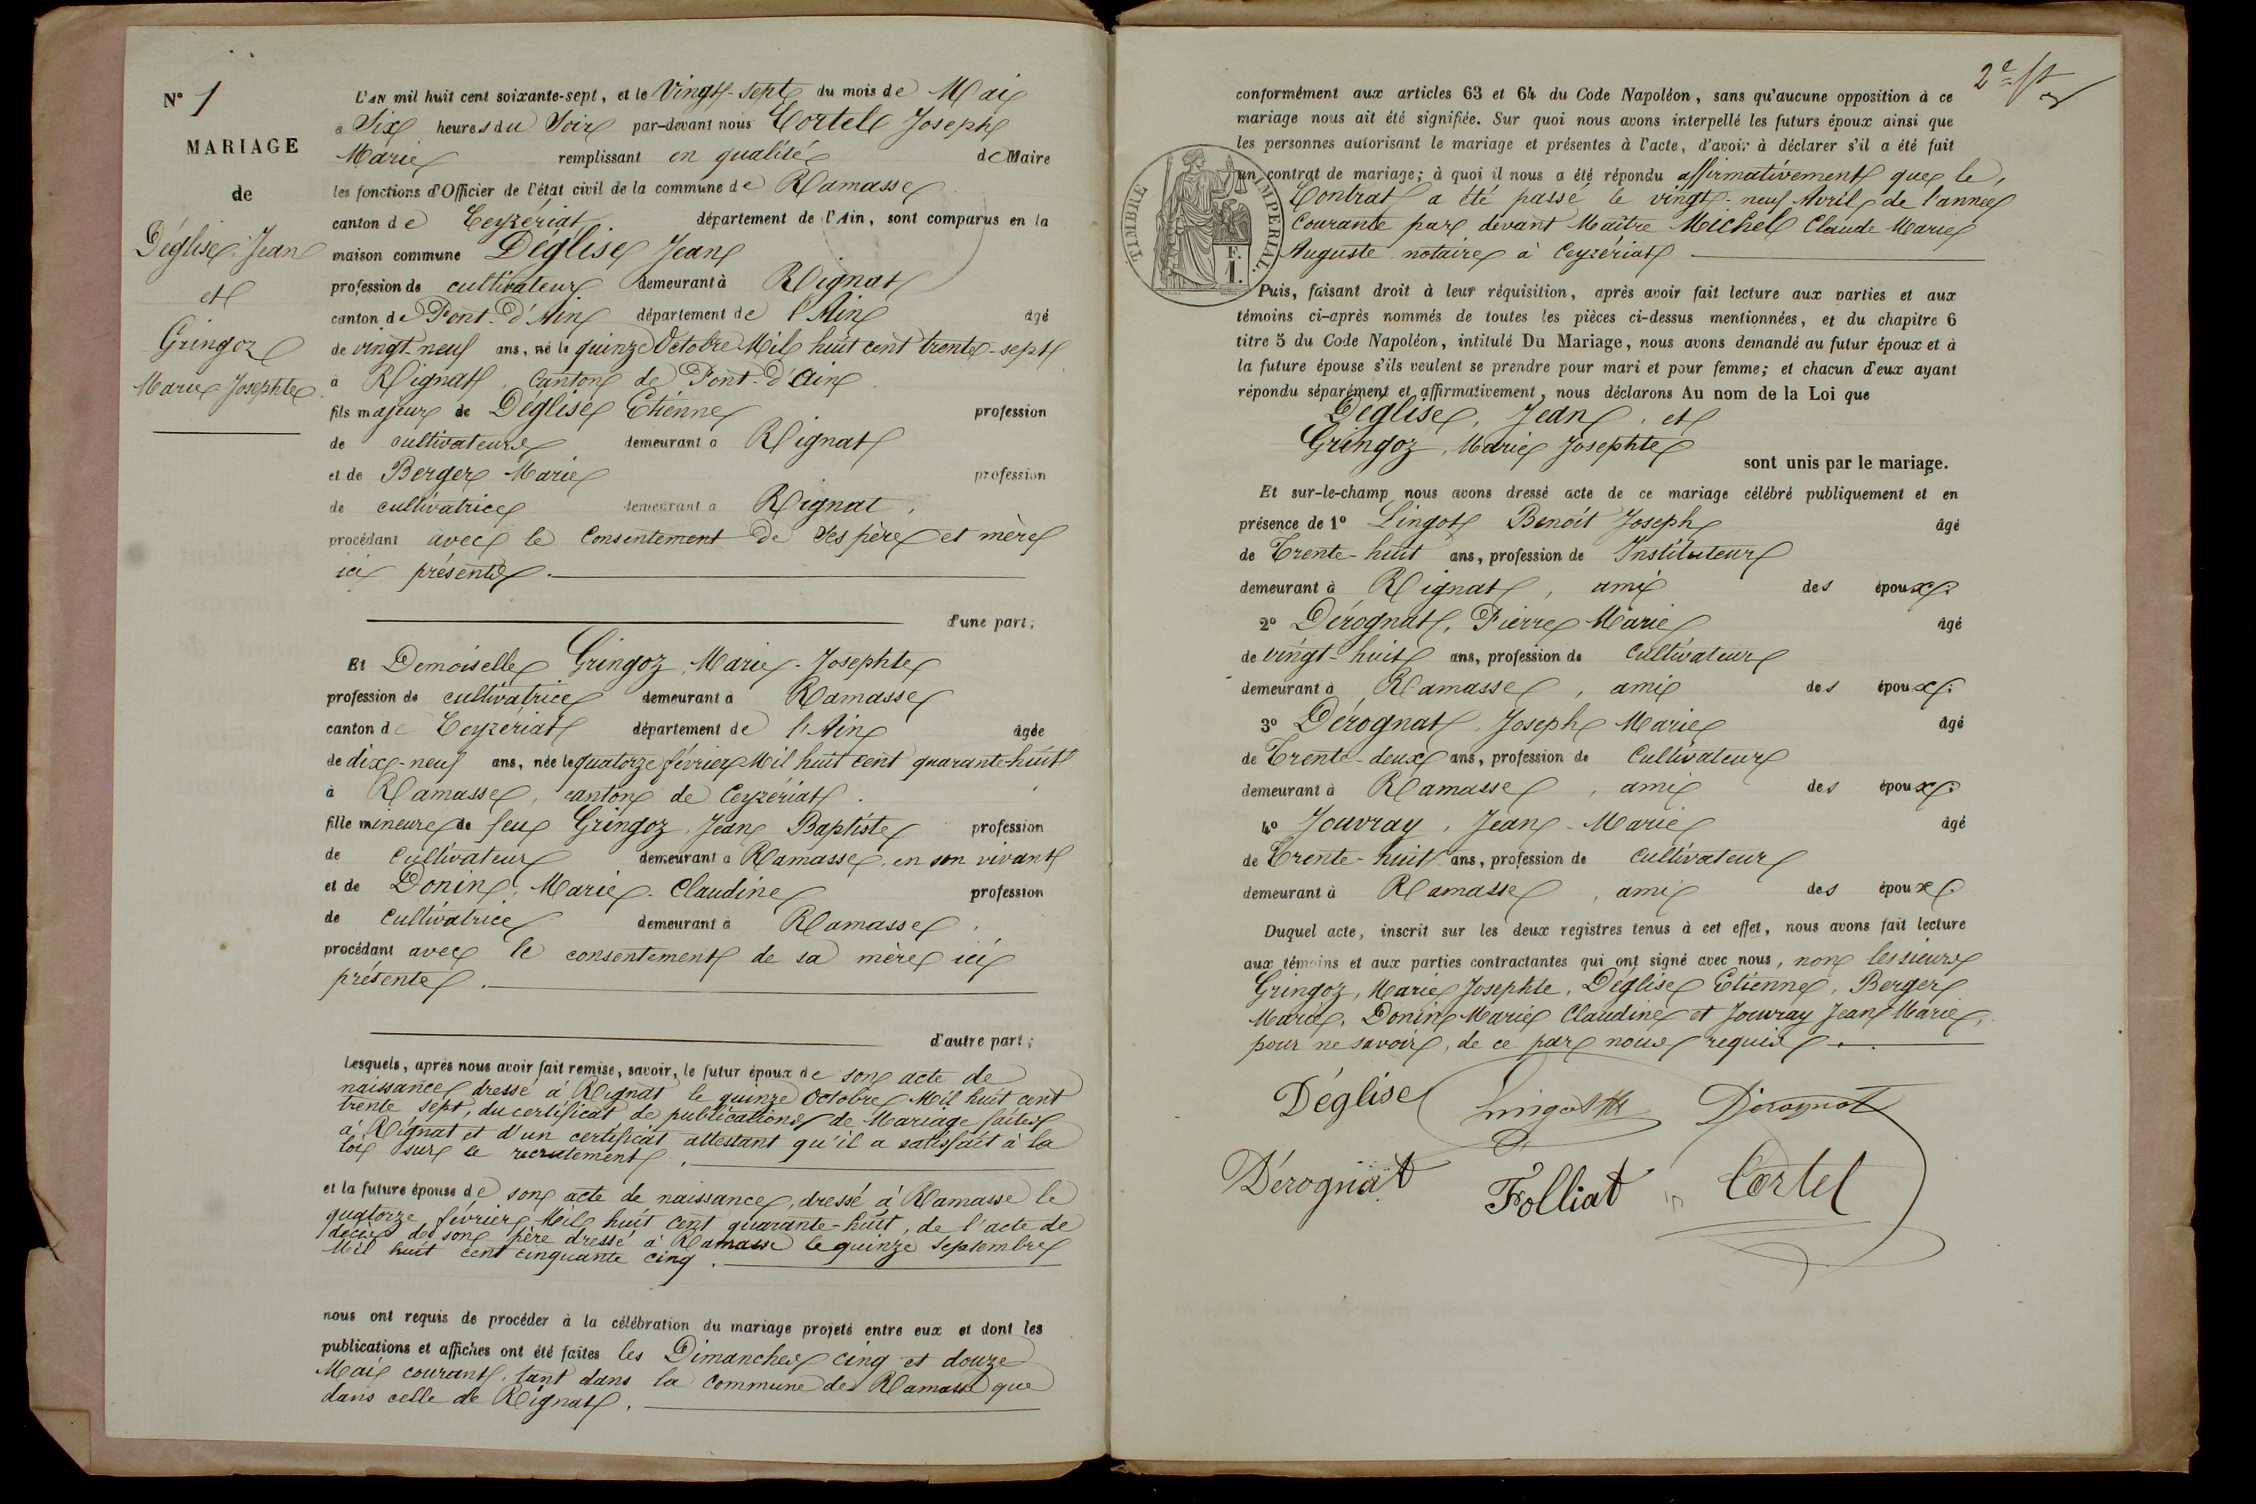 N° 1
MARIAGE
de
Déglise Jean
et
Gringoz
Marie Josephte
L'AN mil huit cent soixante-sept, et le Vingt-Sept du mois de Mai
à Six heures du Soir par-devant nous Cortel Joseph
Marie remplissant en qualité de Maire
les fonctions d'Officier de l'état civil de la commune de Ramasse
canton de Ceyzériat département de l'Ain, sont comparus en la
maison commune Déglise Jean
profession de cultivateur demeurant à Rignat
canton de Pont-d'Ain département de l'Ain âgé
de vingt-neuf ans, né le quinze Octobre Mil huit cent trente-sept
à Rignat, Canton de Pont-d'Ain
fils majeur de Déglise Etienne profession
de cultivateur demeurant à Rignat
et de Berger Marie profession
de cultivatrice demeurant à Rignat,
procédant avec le Consentement de ses père et mère
ici présents.
d'une part;
Et Demoiselle Gringoz, Marie-Josephte
profession de cultivatrice demeurant à Ramasse
canton de Ceyzériat département de l'Ain âgée
de dix-neuf ans, née le quatorze février Mil huit cent quarante-huit
à Ramasse, canton de Ceyzériat.
fille mineure de feu Gringoz, Jean Baptiste profession
de Cultivateur demeurant à Ramasse, en son vivant
et de Donin, Marie-Claudine profession
de Cultivatrice demeurant à Ramasse,
procédant avec le consentement de sa mère ici
présente.
d'autre part;
Lesquels, après nous avoir fait remise, savoir, le futur époux de son acte de
naissance dressé à Rignat le quinze Octobre Mil huit cent
trente sept, du certificat de publications de Mariage faites
à Rignat et d'un certificat attestant qu'il a satisfait à la
loi sur le recrutement.
et la future épouse de son acte de naissance, dressé à Ramasse le
quatorze février Mil huit cent quarante-huit, de l'acte de
décès de son père dressé à Ramasse le quinze Septembre
Mil huit cent cinquante cinq.
nous ont requis de procéder à la célébration du mariage projeté entre eux et dont les
publications et affiches ont été faites les Dimanches cinq et douze
Mai courant, tant dans la Commune de Ramasse que
dans celle de Rignat.
2e
conformément aux articles 63 et 64 du Code Napoléon, sans qu'aucune opposition à ce
mariage nous ait été signifiée. Sur quoi nous avons interpellé les futurs époux ainsi que
les personnes autorisant le mariage et présentes à l'acte, d'avoir à déclarer s'il a été fait
un contrat de mariage; à quoi il nous a été répondu affirmativement que le
Contrat a été passé le vingt-neuf Avril de l'année
Courante par devant Maître Michel Claude Marie
Auguste notaire à Ceyzériat
TIMBRE IMPÉRIAL.
F.
1.
Puis, faisant droit à leur réquisition, après avoir fait lecture aux parties et aux
témoins ci-après nommés de toutes les pièces ci-dessus mentionnées, et du chapitre 6
titre 5 du Code Napoléon, intitulé Du Mariage, nous avons demandé au futur époux et à
la future épouse s'ils veulent se prendre pour mari et pour femme; et chacun d'eux ayant
répondu séparément et affirmativement, nous déclarons Au nom de la Loi que
Déglise, Jean, et
Gringoz, Marie Josephte
sont unis par le mariage.
Et sur-le-champ nous avons dressé acte de ce mariage célébré publiquement et en
présence de 1° Lingot Benoît Joseph âgé
de Trente-huit ans, profession de Instituteur
demeurant à Rignat, ami des époux.
2° Dérognat, Pierre Marie âgé
de vingt-huit ans, profession de Cultivateur
demeurant à Ramasse, ami des époux.
3° Dérognat, Joseph Marie âgé
de Trente-deux ans, profession de Cultivateur
demeurant à Ramasse, ami des époux.
4° Jouvray, Jean-Marie âgé
de Trente-huit ans, profession de Cultivateur
demeurant à Ramasse, ami des époux.
Duquel acte, inscrit sur les deux registres tenus à cet effet, nous avons fait lecture
aux témoins et aux parties contractantes qui ont signé avec nous, non les sieurs
Gringoz, Marie Josephte, Déglise Etienne, Berger
Marie, Donin Marie Claudine et Jouvray Jean Marie,
pour ne savoir, de ce par nous requis.
Déglise Lingot Dérognat
Dérognat Folliat Cortel